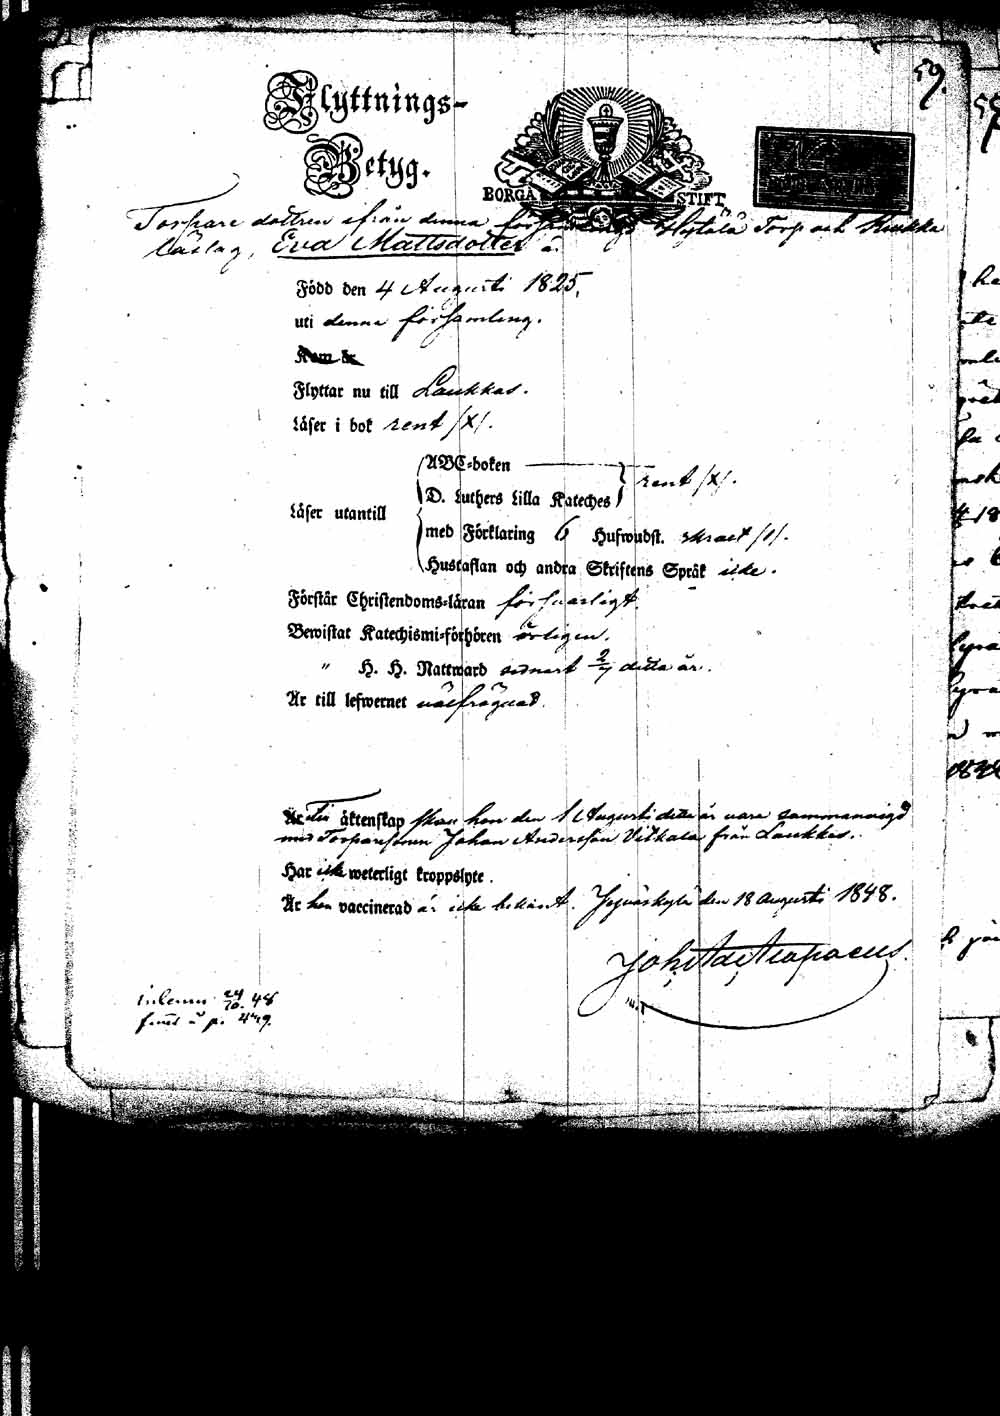 59.
Flyttnings-
Betyg.
BORGÅ STIFT
Torpare dottren ifrån denna församlings Hytölä Torp och Kuukka
låslag, Eva Mattsdotter ä.
Född den 4 Augusti 1825,
uti denna församling.
Kom är
Flyttar nu till Laukkas.
Läser i bok rent /x/.
ABC-boken
rent /x/.
D. Luthers Lilla Kateches
Läser utantill
med Förklaring 6 Hufwudst. svart /1/.
Hustaflan och andra Skriftens Språk icke.
Förstår Christendoms-läran försvarligt.
Bewistat Katechismi-förhören årligen.
" H. H. Nattward senast detta år.
Är till lefwernet välfrägdad.
Är Till äktenskap skall hon den 1 Augusti detta år vara sammanvigd
med Torparesonen Johan Andersson Vitikala från Laukkas.
Har icke weterligt kroppslyte.
Är hon vaccinerad är icke bekant. Jyväskylä den 18 Augusti 1848.
inlemn. 24/10. 48
förd å p. 449.